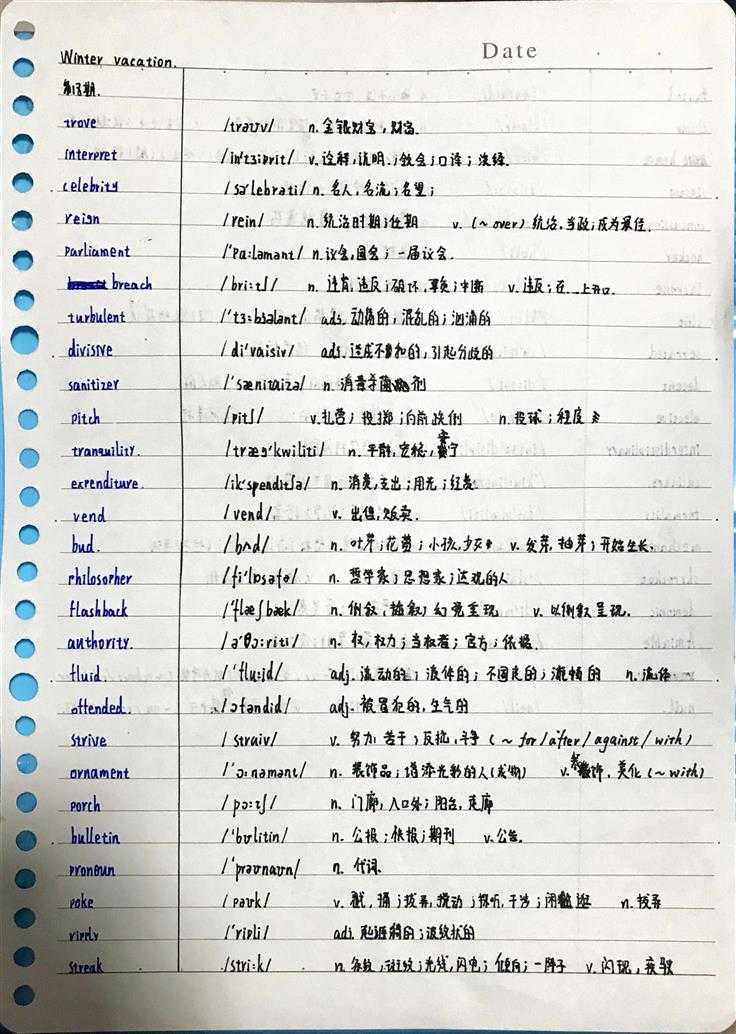 Date
Winter vacation.
第15期.
trove /trəʊv/ n. 金银财宝,财富.
interpret /in'tɜːprit/ v. 诠释,说明;领会;口译;演绎.
celebrity /sə'lebrəti/ n. 名人,名流;名望;
reign /rein/ n. 统治时期;任期 v. (~over) 统治,当政;成为最佳.
parliament /'pɑːləmənt/ n. 议会,国会;一届议会.
breach /briːtʃ/ n. 违背,违反;破坏,中断 v. 违反;在...上开口.
turbulent /'tɜːbjələnt/ adj. 动荡的;混乱的;汹涌的
divisive /di'vaisiv/ adj. 造成不和的,引起分歧的
sanitizer /'sænitaizə/ n. 消毒杀菌剂
pitch /pitʃ/ v. 扎营;投掷;向前跌倒 n. 投球;程度
tranquility. /træŋ'kwiliti/ n. 平静,安稳,安宁
expenditure. /ik'spenditʃə/ n. 消费,支出;用光;经费
vend /vend/ v. 出售,贩卖.
bud. /bʌd/ n. 叶芽;花蕾;小孩,少女 v. 发芽,抽芽;开始生长.
philosopher /fi'lɒsəfə/ n. 哲学家;思想家;达观的人
flashback /'flæʃbæk/ n. 倒叙,插叙;幻觉重现 v. 以倒叙呈现.
authority. /ə'θɔːriti/ n. 权,权力;当权者;官方;依据.
fluid /'fluːid/ adj. 流动的;液体的;不固定的;流畅的 n. 流体
offended. /əfəndid/ adj. 被冒犯的,生气的
strive /straiv/ v. 努力,苦干;反抗,斗争 (~for/after/against/with)
ornament /'ɔːnəmənt/ n. 装饰品;增添光彩的人(或物) v. 装饰,美化 (~with)
porch /pɔːtʃ/ n. 门廊,入口处;阳台,走廊
bulletin /'bʊlitin/ n. 公报;快报;期刊 v. 公告.
pronoun /'prəʊnaʊn/ n. 代词.
poke /pəʊk/ v. 戳,捅;拨弄,搅动;探听,干涉;闲逛 n. 拨弄
ripply /'ripli/ adj. 起涟漪的;波纹状的
streak /striːk/ n. 条纹,斑纹;光线,闪电;倾向;一阵子 v. 闪现,疾驶